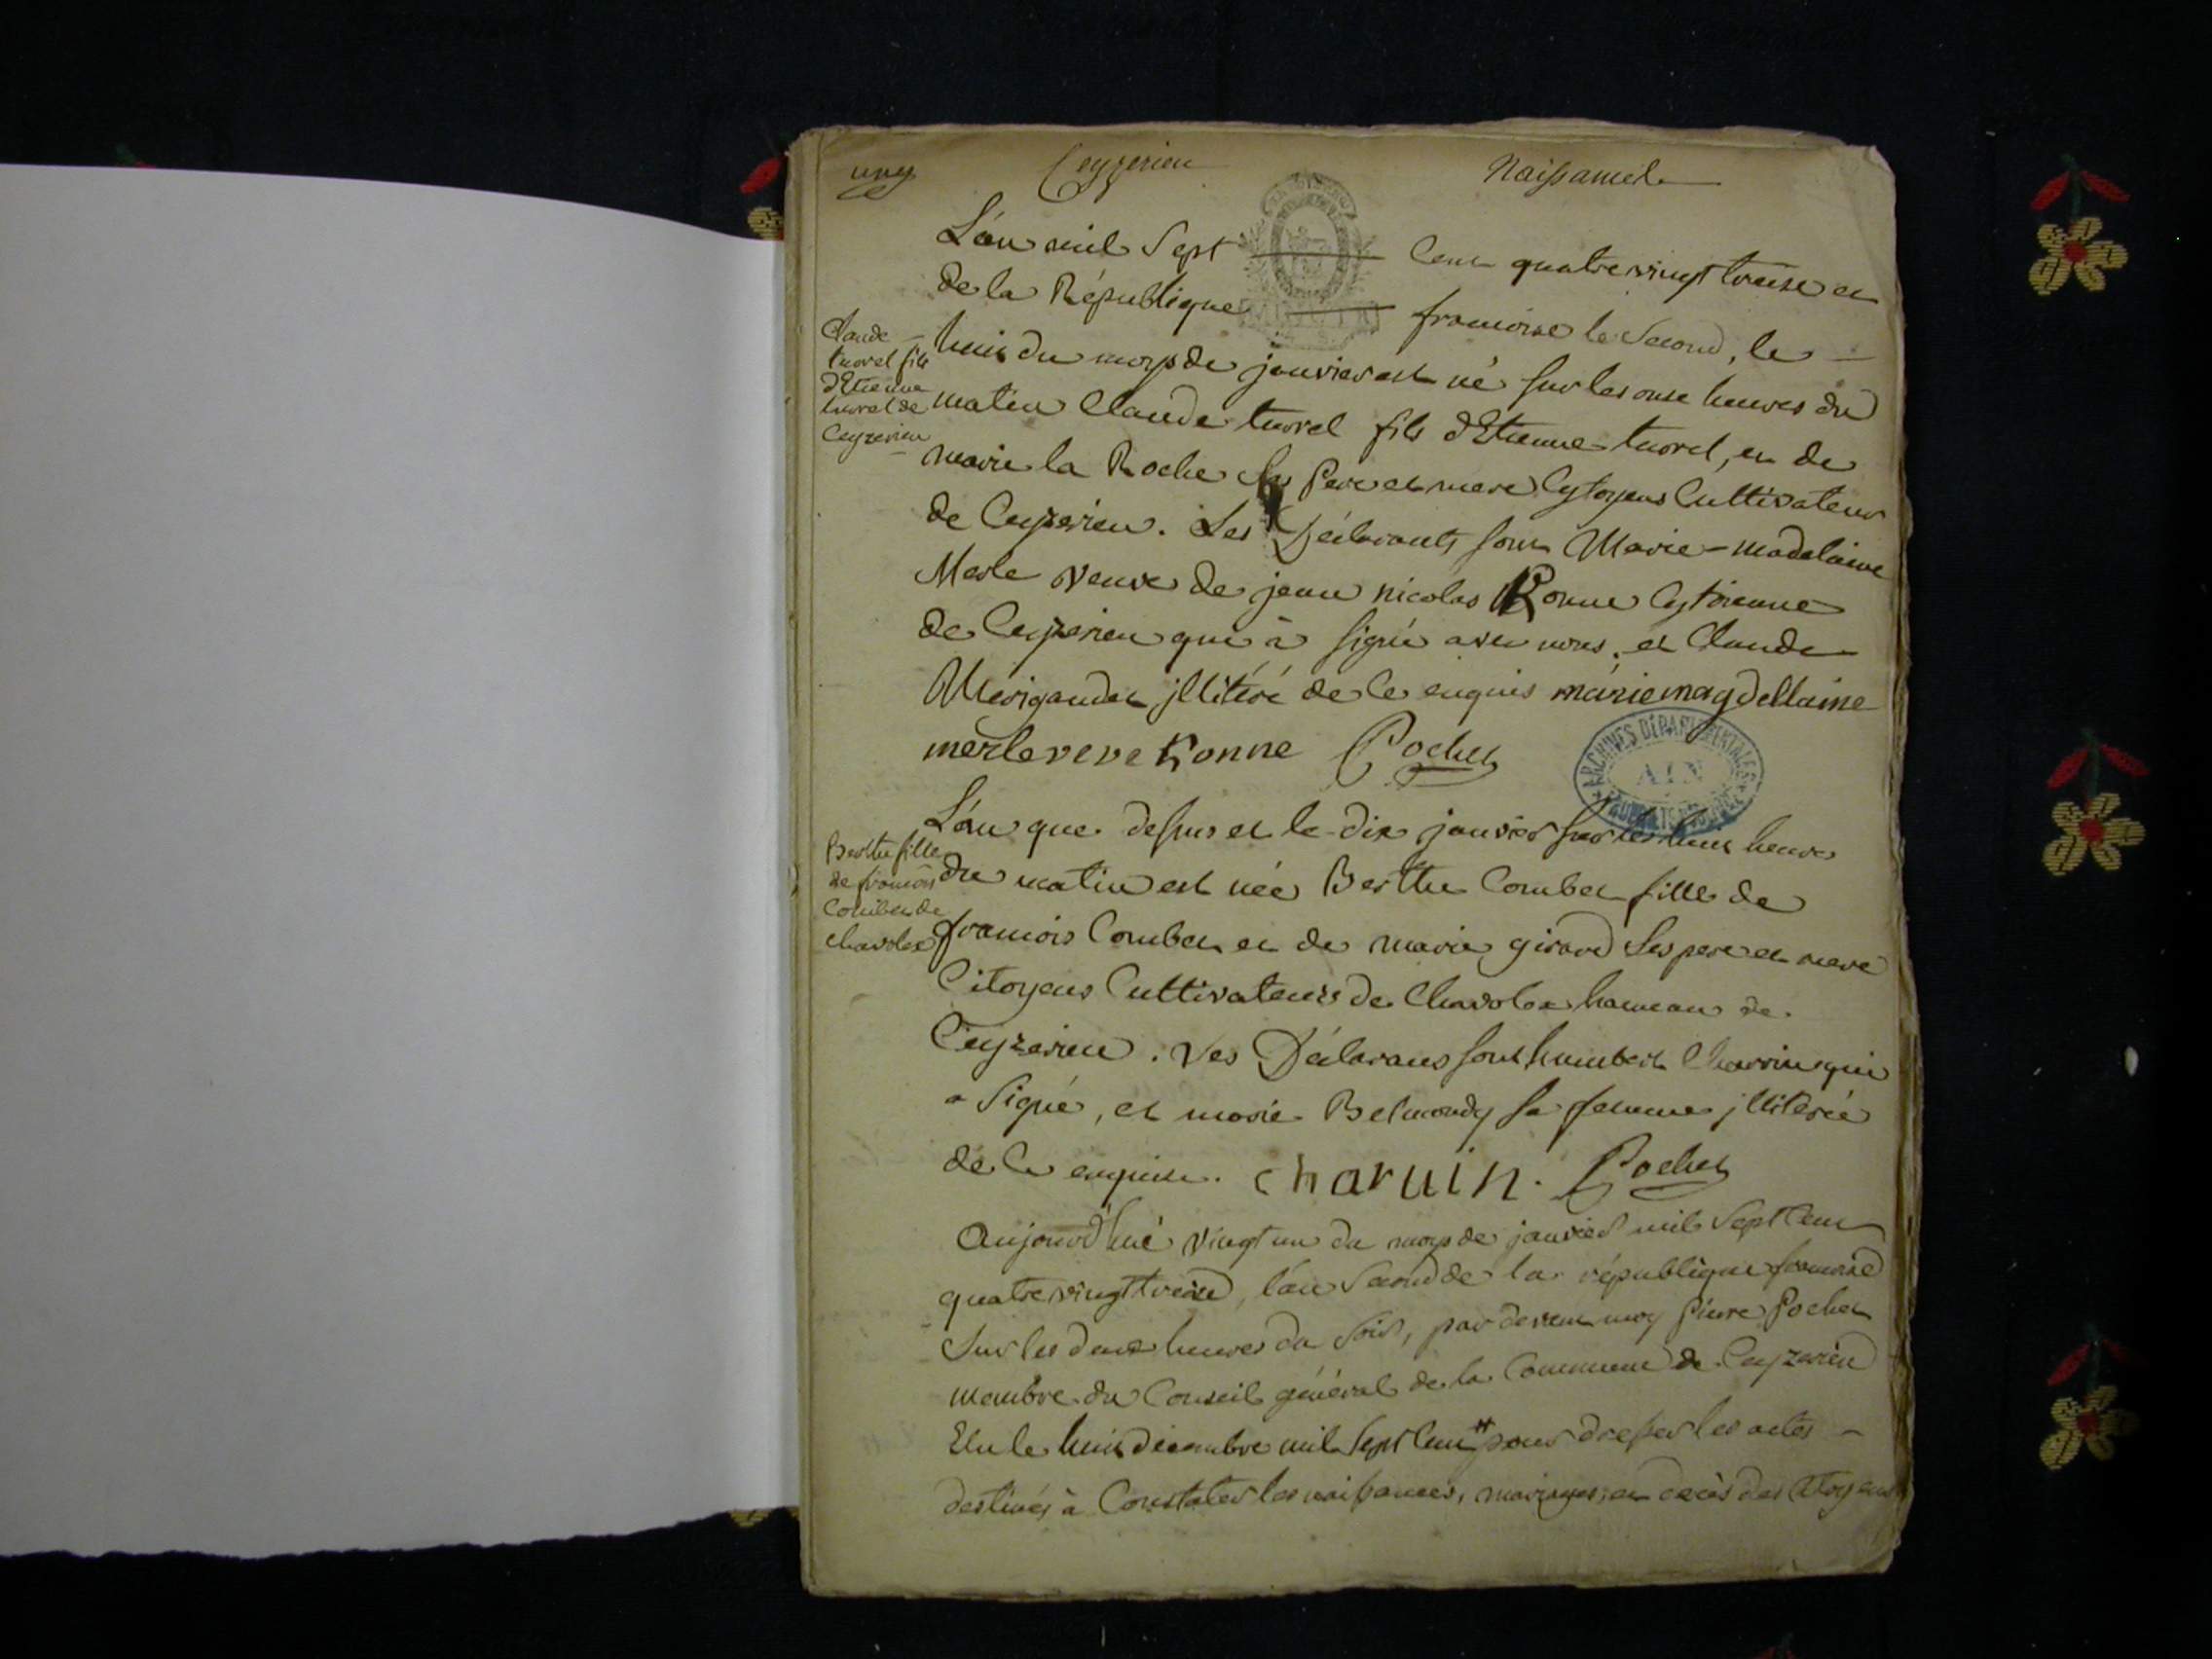 ung Ceyzerieu Naissances
L'an mil Sept Cent quatrevingt treize et
de la République françoise le Second, le
huit du moys de janvier est né sur les onze heures du
matin Claude turrel fils d'Etienne turrel, et de
marie la Roche Ses Pere et mere Cytoyens Cultivateurs
de Ceyzerieu. Les Déclarants sont Marie-madelaine
Merle veuve de jean nicolas Konne Cytoienne
de Ceyzerieu qui à signé avec nous. et Claude
illitéré de ce enquis marie magdellaine
merle veve Konne Pochet
Claude
turrel fils
d'Etienne
turrel de
Ceyzerieu
ARCHIVES DÉPARTEMENTALES
AIN
L'an que dessus et le dix janvier sur les huit heures
du matin est née Berthe Combet fille de
francois Combet et de marie girard Ses pere et mere
Citoyens Cultivateurs de Chavolex hameau de
Ceyzerieu. Les Déclarans sont humbert Charvin qui
a Signé, et marie Belmondy sa femme illiterée
de ce enquise. charuin. Pochet
Berthe fille
de francois
Combet de
chavolex
Aujourd'hui vingt un du moys de janvier mil Sept Cent
quatrevingt treize, l'an Second de la république françoise
Sur les deux heures du Soir, par devent moy Pierre Pochet
membre du Conseil général de la Commune de Ceyzerieu
Elu le huit decembre mil Sept Cent # pour dresser les actes
destinés à Constater les naissances, mariages, et decès des Citoyens